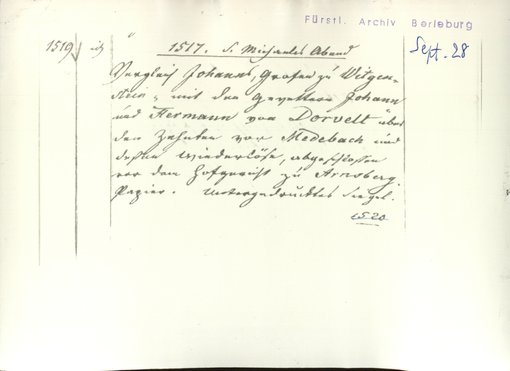 Fürstl. Archiv Berleburg
1519
1517. S. Michaelis Abend
Sept. 28
Vergleich Johanns, Grafen zu Witgen-
stein, mit den Gevettern Johann
und Hermann von Dorvelt über
den Zehnten vor Medebach und
dessen Wiederlöse, abgeschlossen
vor dem Hofgericht zu Arnsberg.
Papier. Untergedrucktes Siegel.